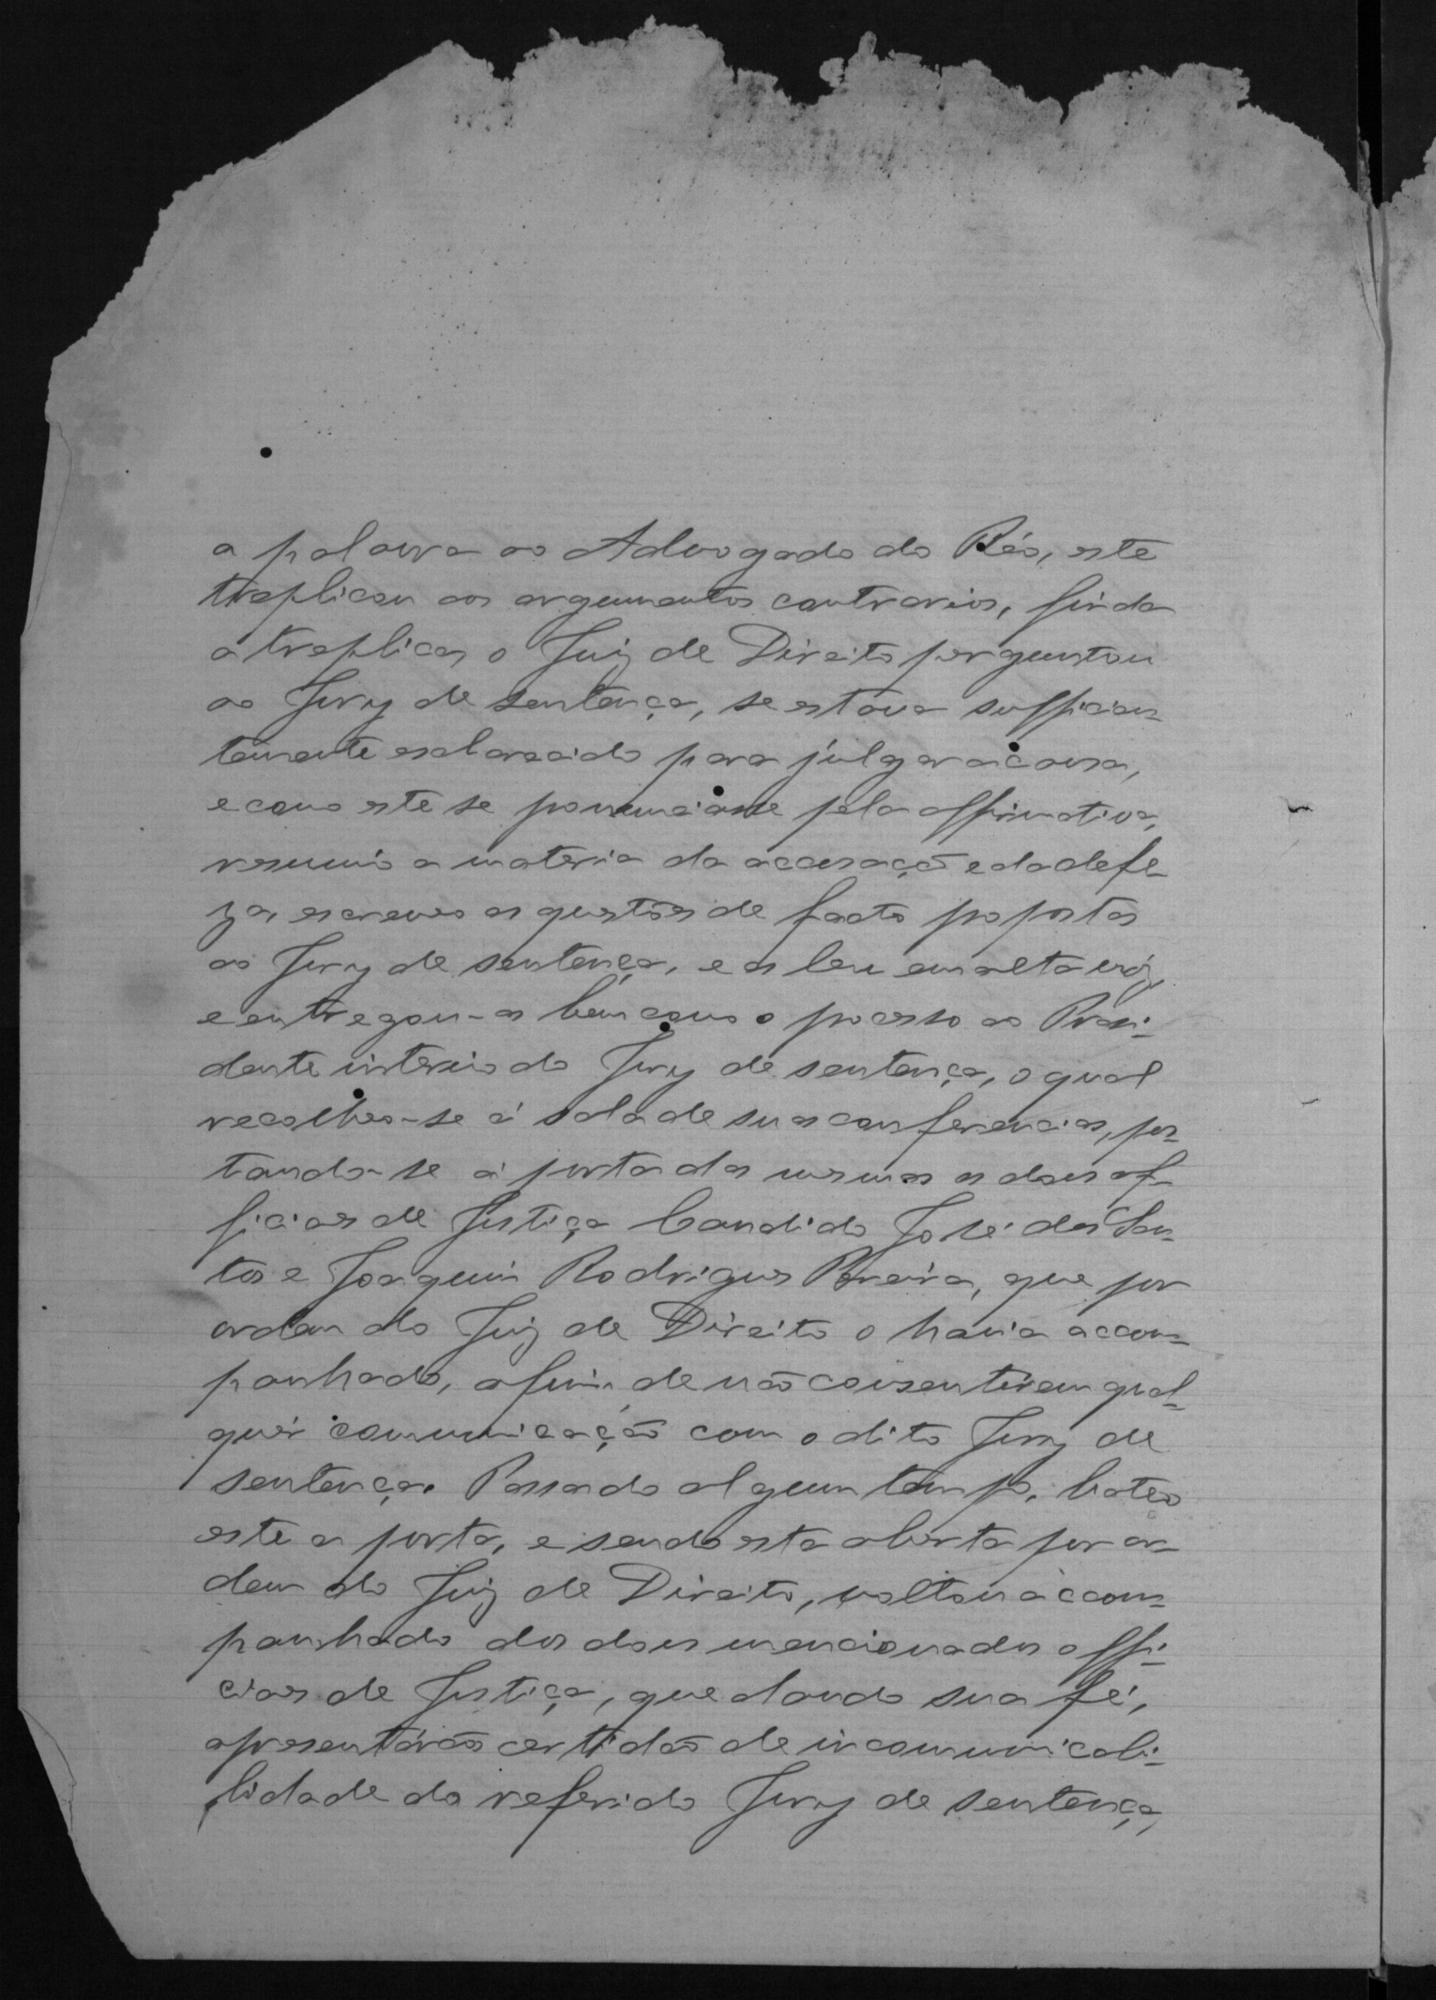 a palavra ao Advogado do Réo, este
treplicou aos argumentos contrarios, finda
a treplica, o Juiz de Direito perguntou
ao Jury de sentença, se estava sufficien-
temente esclarecido para julgar a causa,
e como este se pronunciasse pela affirmativa,
resumio a materia da accusação e da defe-
za, escreveo as questões de facto propostas
ao Jury de sentença, e as leu em alta vóz,
e entregou-as bem como o processo ao Presi-
dente interino do Jury de sentença, o qual
recolheo-se á sala de suas conferencias, pos-
tando-se á porta das mesmas os dous of-
ficiaes de Justiça Candido José dos San-
tos e Joaquim Rodrigues Pereira, que por
ordem do Juiz de Direito o havia accom-
panhado, afim de não consentirem qual-
quér communicação com o dito Jury de
sentença. Passado algum tempo, bateo
este a porta, e sendo esta aberta por or-
dem do Juiz de Direito, voltou accom-
panhado dos dous mencionados offi-
ciaes de Justiça, que dando sua fé,
apresentárão certidão de incommunicabi-
lidade do referido Jury de sentença,